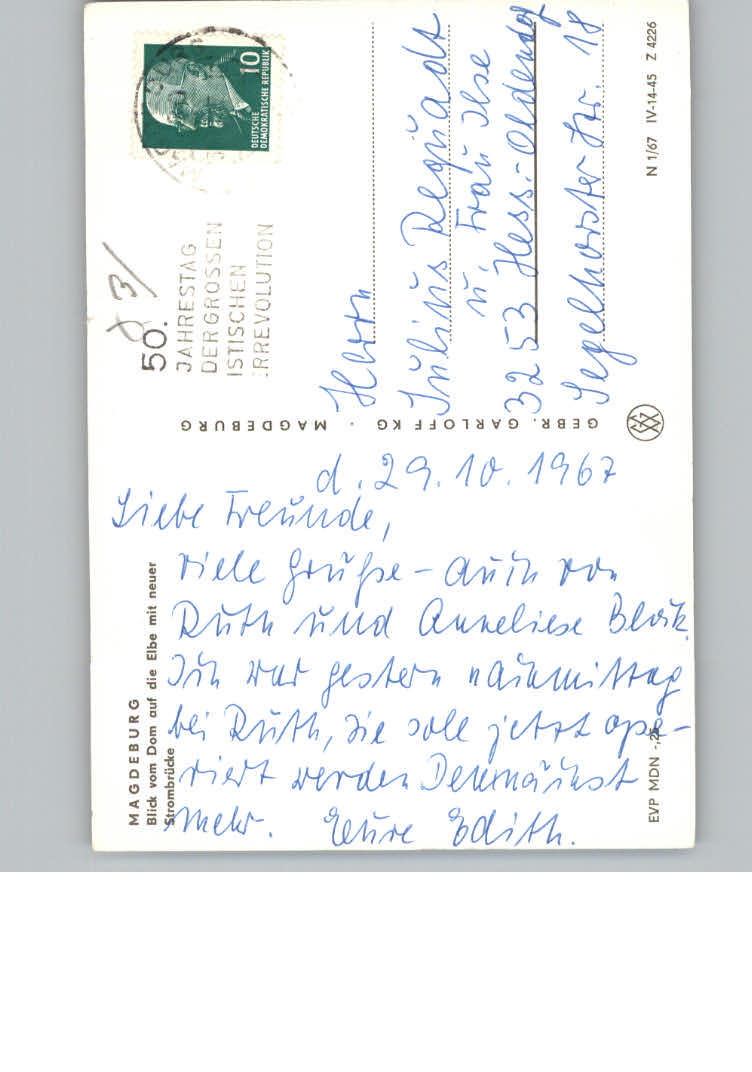 d. 29.10.1967
Liebe Freunde,
viele Grüße - auch von
Ruth und Anneliese
Ich war gestern nachmittag
bei Ruth, sie soll jetzt ope-
riert werden Demnächst
mehr. Eure Edith.
Herrn
Julius Requadt
u. Frau Ilse
3253 Hess.-Oldendorf
Segelhorster Str. 18
MAGDEBURG
Blick vom Dom auf die Elbe mit neuer
Strombrücke
GEBR. GARLOFF KG · MAGDEBURG
EVP MDN -,25
N 1/67 IV-14-45 Z 4226
50.
JAHRESTAG
DER GROSSEN
ISTISCHEN
RREVOLUTION
10
DEUTSCHE
DEMOKRATISCHE REPUBLIK